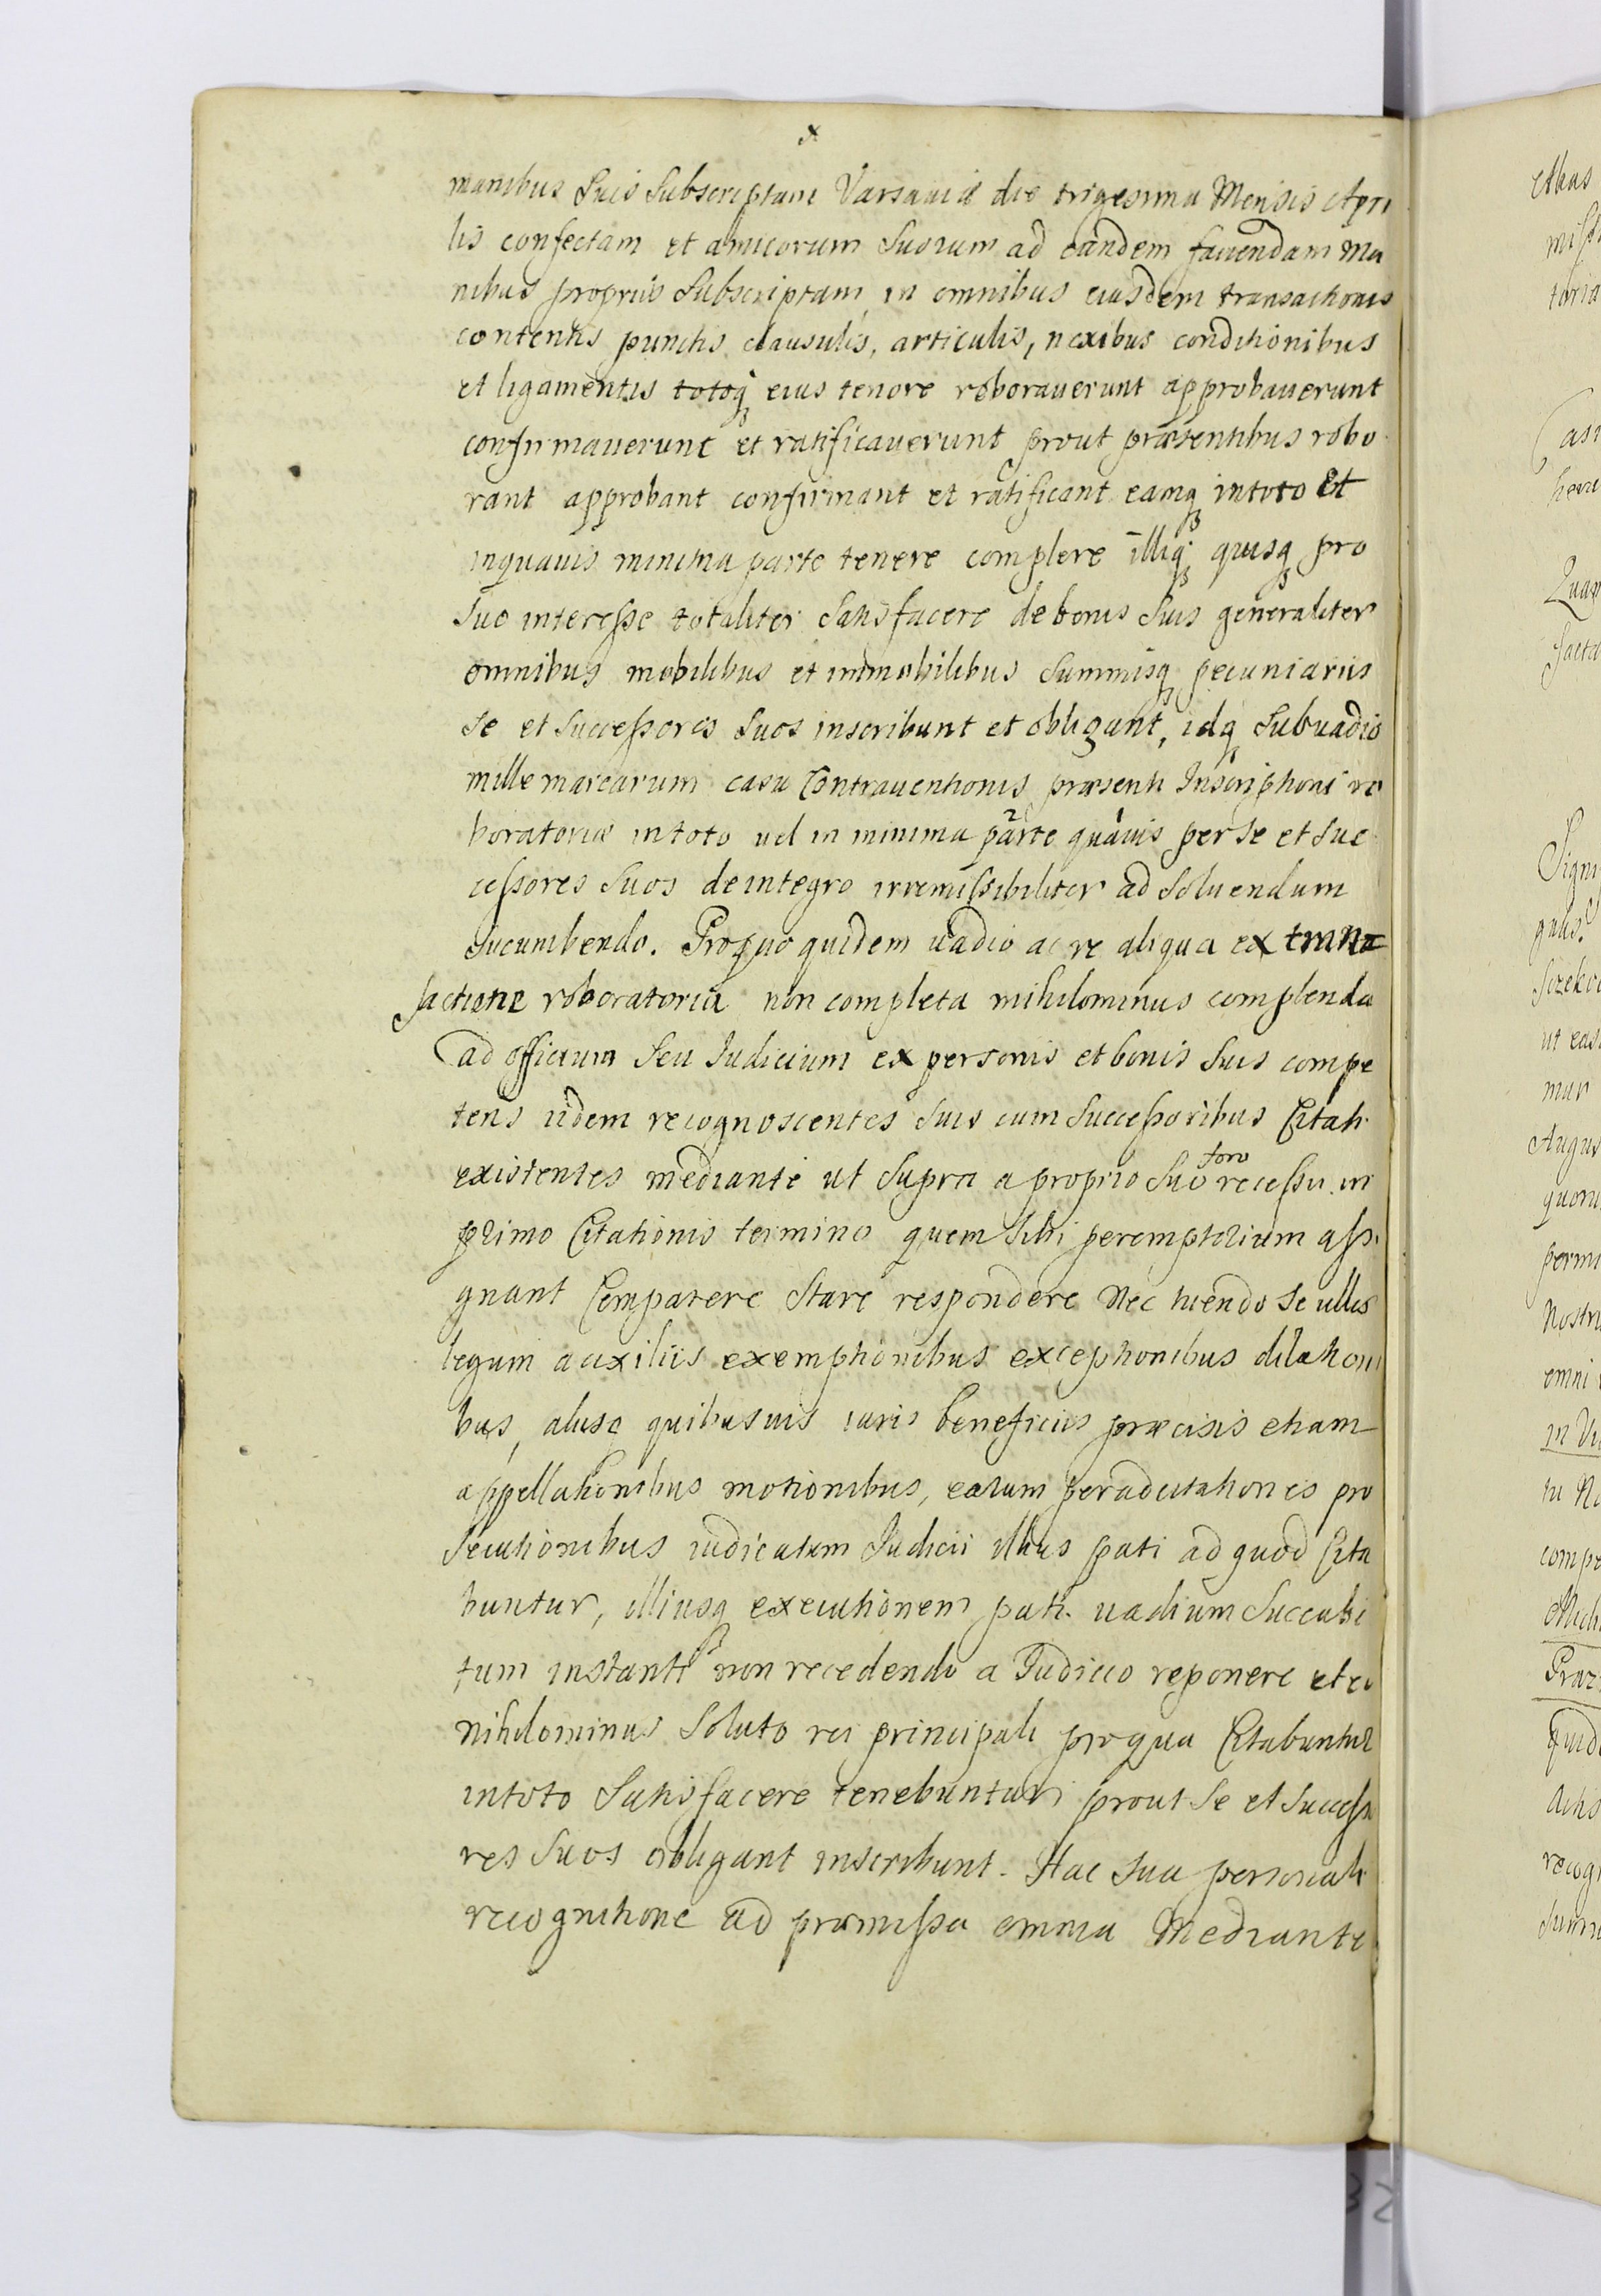 x
manibus Suis Subscriptam Varsaviæ die trigesima Mensis Apri
lis confectam et amicorum Suorum ad eandem faciendam Ma
nibus proprijs Subscriptam, in omnibus eiusdem transactionis
contentis punctis clausulis, articulis, nexibus conditionibus
et ligamentis totoq; eius tenore roborauerunt approbauerunt
confirmauerunt et ratificauerunt prout præsentibus robo
rant approbant confirmant et ratificant eamq; intoto Et
inquauis minima parte tenere complere illiq; quisq; pro
Suo interesse totaliter Satisfacere debonis Suis generaliter
omnibus mobilibus et immobilibus Summisq; pecuniariis
Se et Successores Suos inscribunt et obligant, idq; Subuadio
mille marcarum casu Contrauentionis præsenti Inscriptioni ro
boratoriæ intoto uel in minima parte quauis perse et Suc
cessores Suos deintegro irremissibiliter ad Soluendum
Sucumbendo. Proquo quidem uadio ac re aliqua ex trans
sactione roboratoria non completa nihilominus complenda
ad officium Seu Iudicium ex personis et bonis Suis compe
tens iidem recognoscentes Suis cum Successoribus Citati
existentes mediante ut Supra a proprio Suo foro recessu in
primo Citationis termino quem Sibi peremptorium assi
gnant Comparere Stare respondere Nec tuendo Se ullis
legum auxiliis exemptionibus exceptionibus dilationi
bus, alijsq quibusuis iuris beneficiis præcisis etiam
appellationibus motionibus, earum peradcitationes pro
Secutionibus iudicatum Iudicii illius pati ad quod Cita
buntur, illiusq; executionem pati. uadium Succubi
tum instanti non recedendo a Iudicio reponere et eo
nihilominus Soluto rei principali proqua Citabuntur
intoto Satisfacere tenebuntur prout Se et Successo
res Suos obligant inscribunt. Hac Sua personali
recognitione ad præmissa omnia Mediante